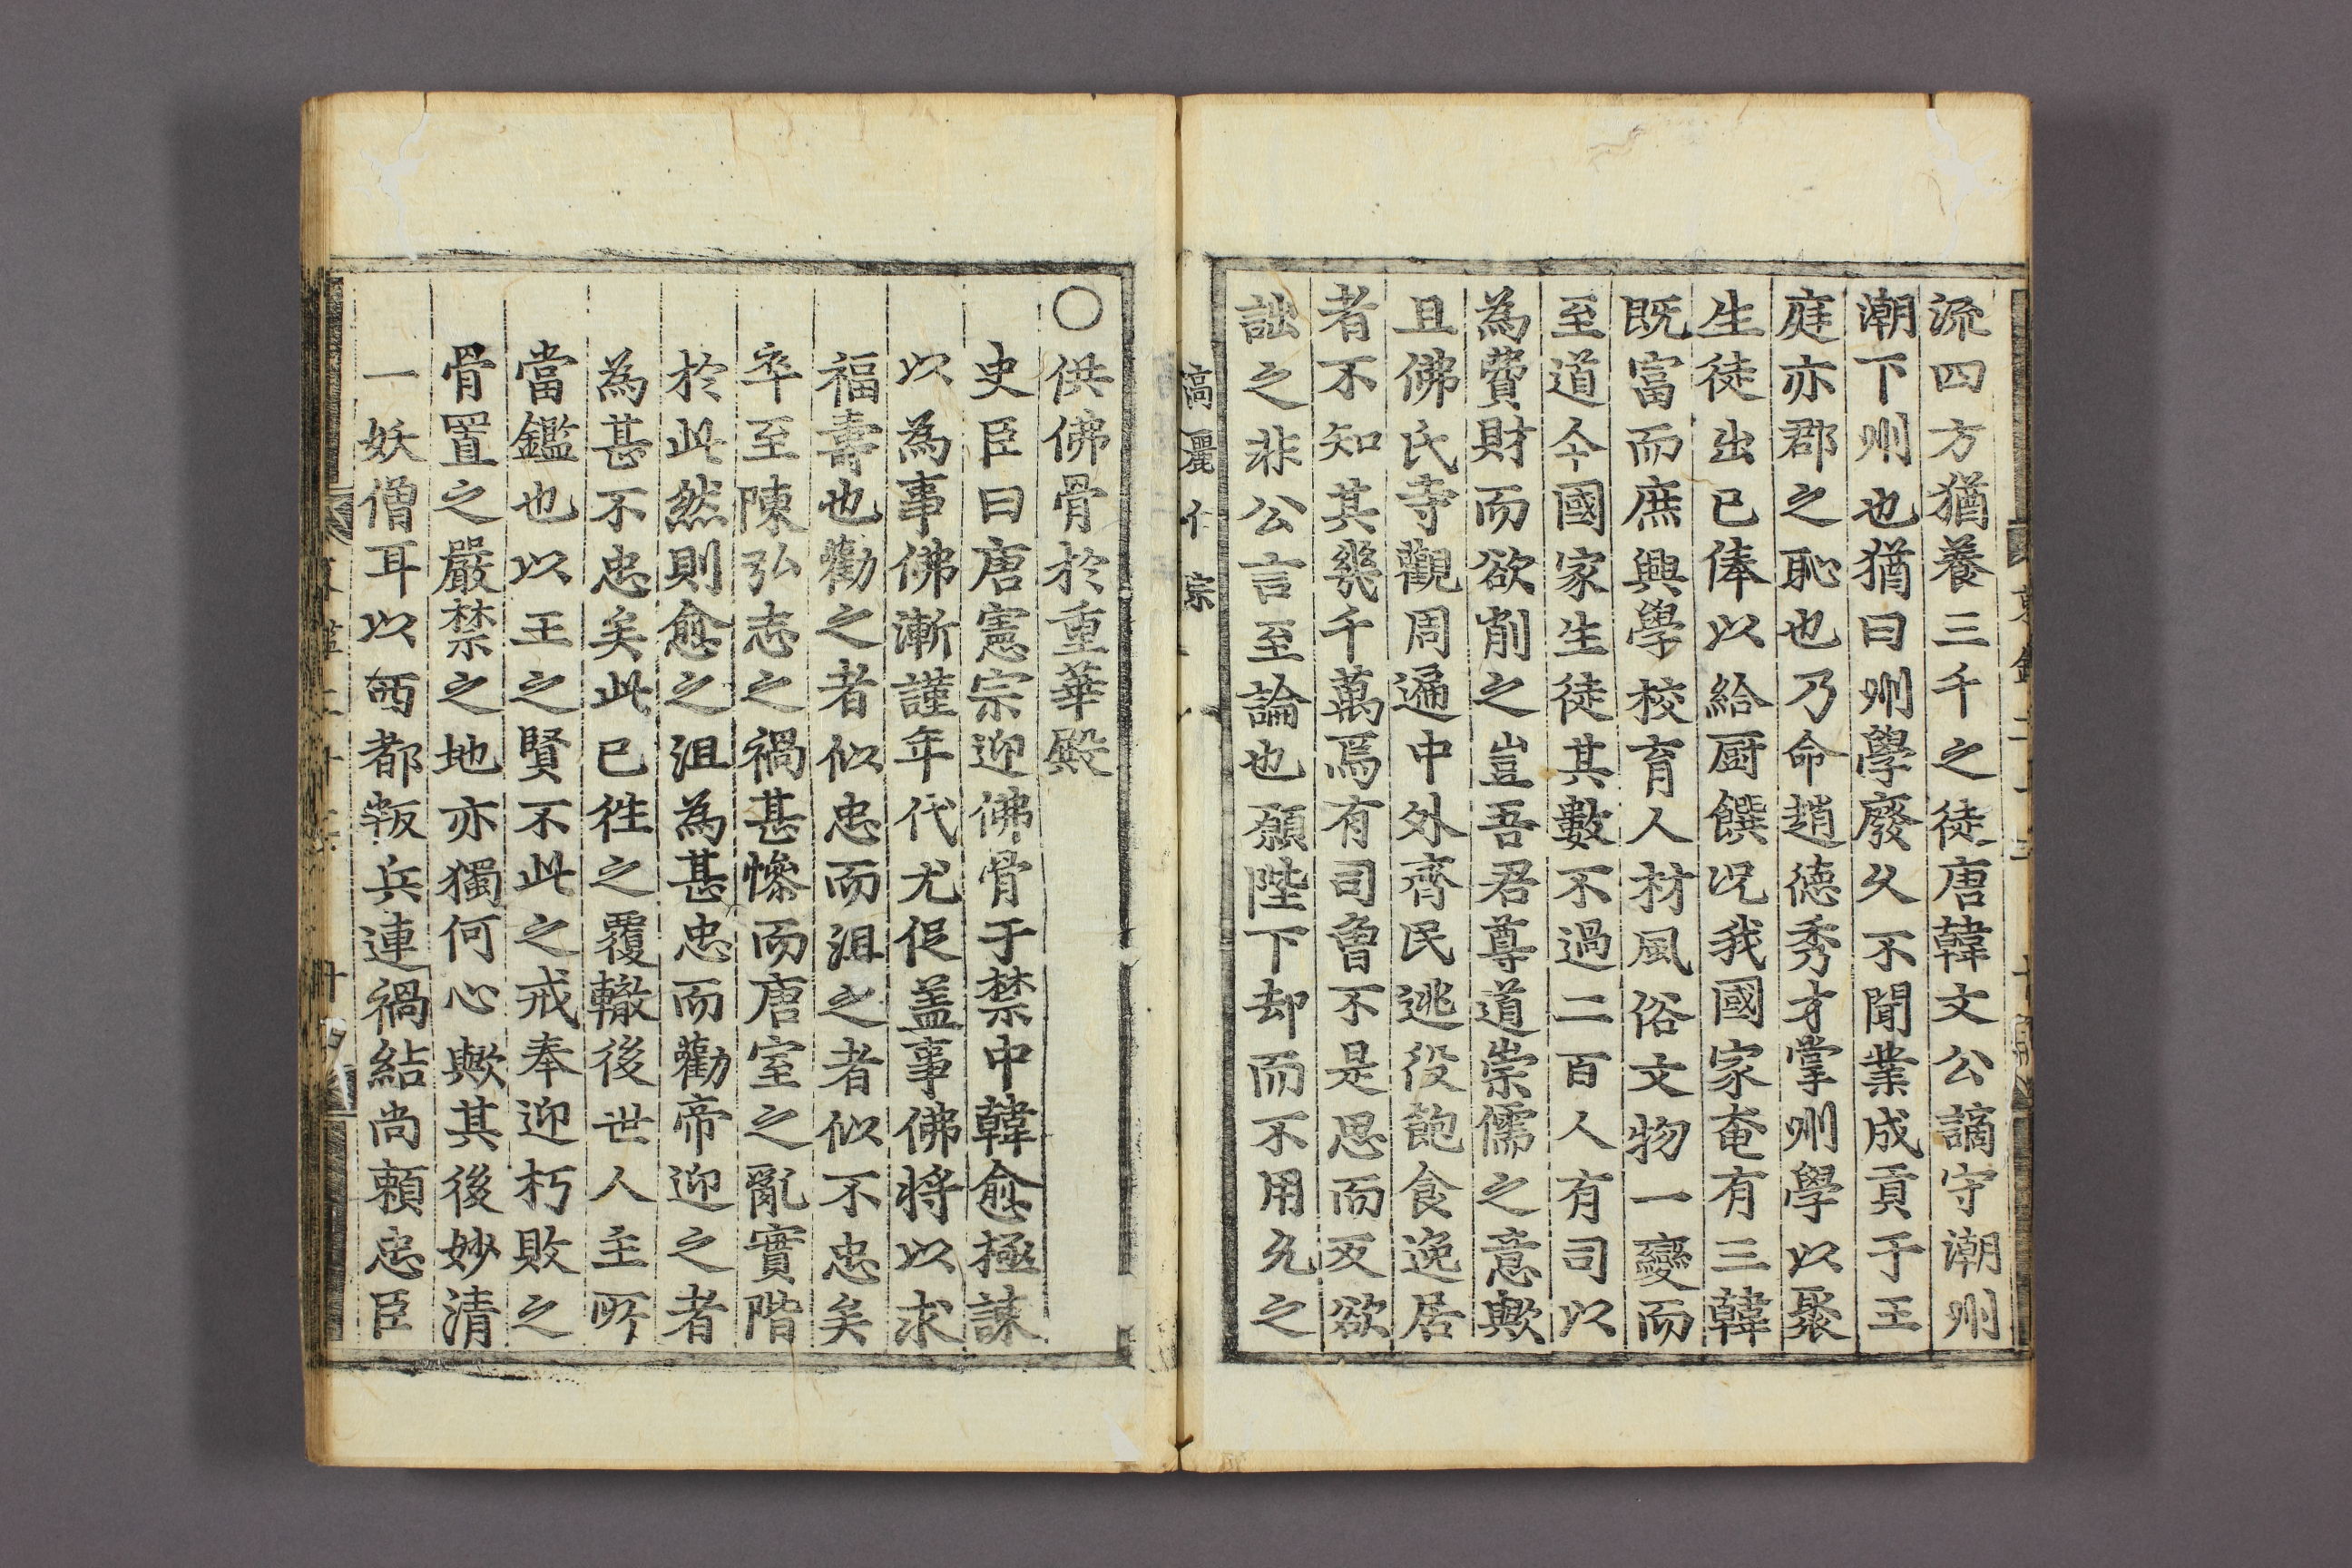 流四方猶養三千之徒唐韓文公謫守潮州
潮下州也猶曰州學廢久不聞業成貢于王
庭亦郡之恥也乃命趙德秀才掌州學以聚
生徒出已俸以給厨饌况我國家奄有三韓
既富而庶興學校育人材風俗文物一變而
至道今國家生徒其數不過二百人有司以
為費財而欲削之豈吾君尊道崇儒之意歟
且佛氏寺觀周遍中外齊民逃役飽食逸居
者不知其幾千萬焉有司曾不是思而反欲
詘之非公言至論也願陛下却而不用允之
高麗仁宗
〇供佛骨於重華殿
史臣曰唐憲宗迎佛骨于禁中韓愈極諫
以為事佛漸謹年代尤促盖事佛將以求
福壽也勸之者似忠而沮之者似不忠矣
卒至陳弘志之禍甚慘而唐室之亂實階
於此然則愈之沮為甚忠而勸帝迎之者
為甚不忠矣此已徃之覆轍後世人主所
當鑑也以王之賢不此之戒奉迎朽敗之
骨置之嚴禁之地亦獨何心歟其後妙清
一妖僧耳以西都叛兵連禍結尚賴忠臣